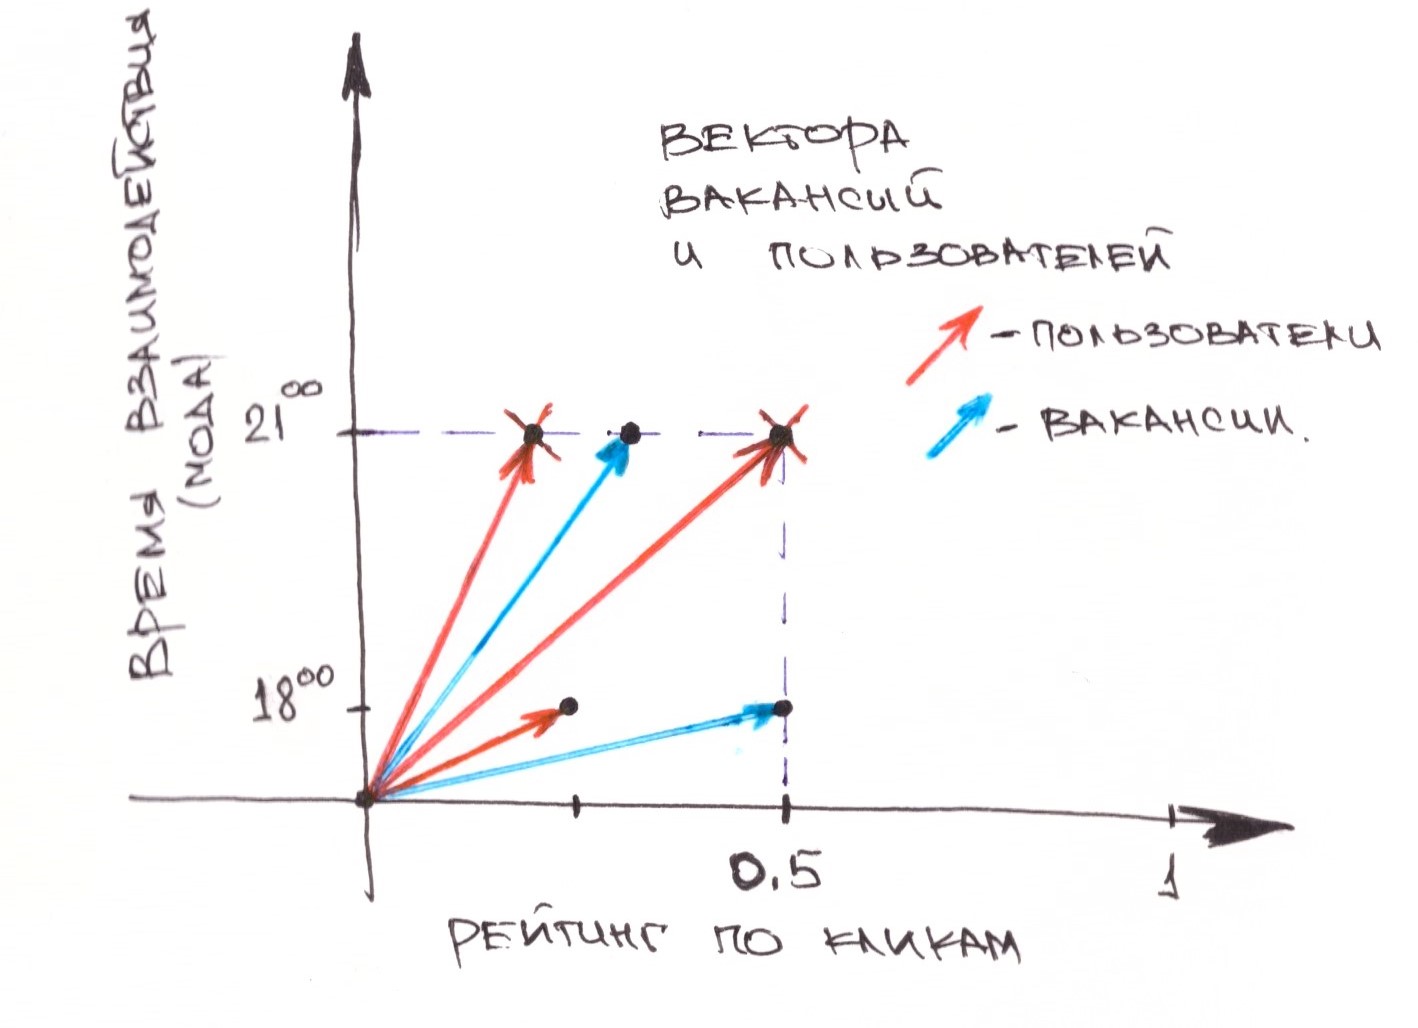 ВЕКТОРА
ВАКАНСИЙ
И ПОЛЬЗОВАТЕЛЕЙ
- ПОЛЬЗОВАТЕЛИ
- ВАКАНСИИ.
ВРЕМЯ ВЗАИМОДЕЙСТВИЯ
(МОДА)
21⁰⁰
18⁰⁰
0.5
1
РЕЙТИНГ ПО КЛИКАМ